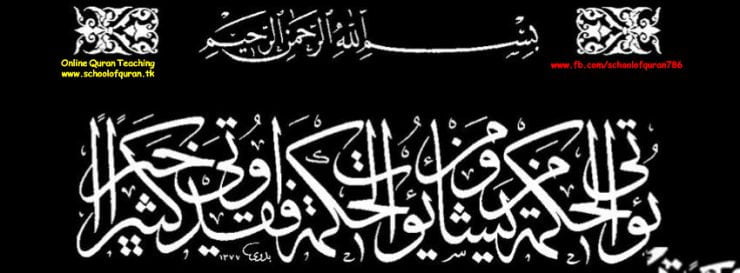 بِسْمِ اللهِ الرَّحْمٰنِ الرَّحِيْمِ
Online Quran Teaching
www.schoolofquran.tk
www.fb.com/schoolofquran786
يُؤتي الحكمة من يشاء ومن يؤت الحكمة فقد أوتي خيرًا كثيرًا
١٣٧٧